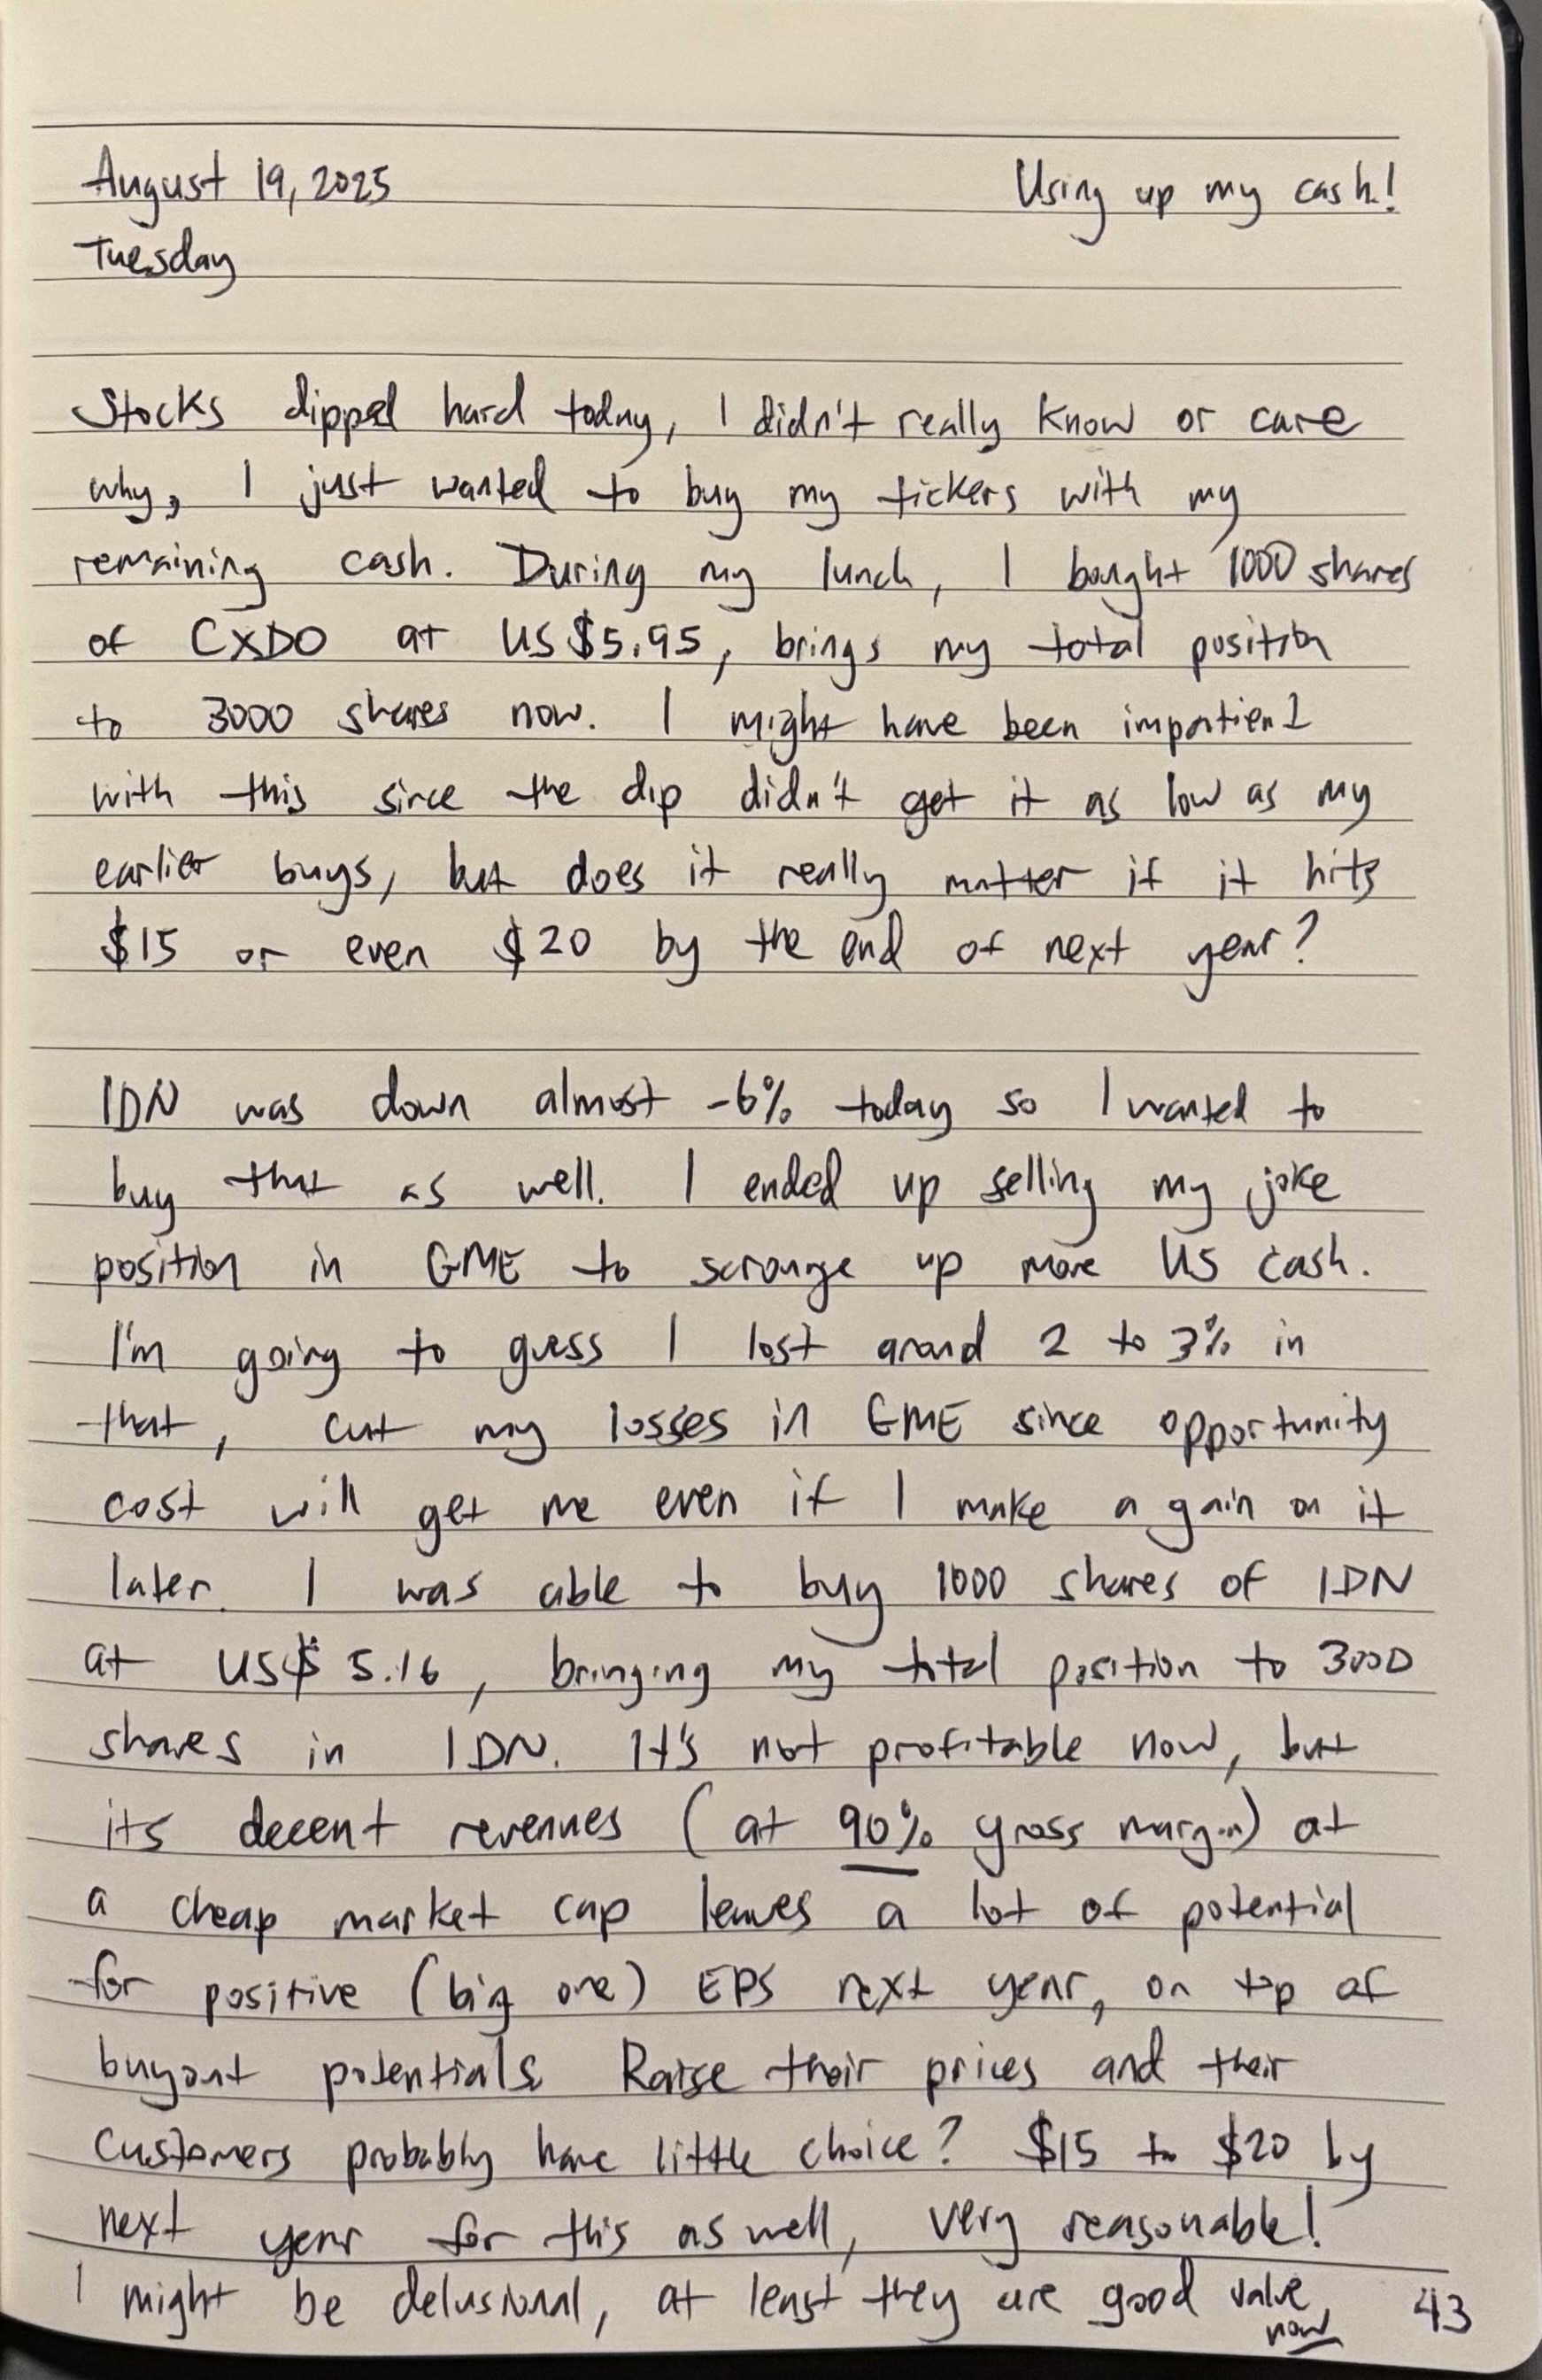 August 19, 2025 Using up my cash!
Tuesday
Stocks dipped hard today, I didn't really know or care
why, I just wanted to buy my tickers with my
remaining cash. During my lunch, I bought 1000 shares
of CXDO at US$5.95, brings my total position
to 3000 shares now. I might have been impatient
with this since the dip didn't get it as low as my
earlier buys, but does it really matter if it hits
$15 or even $20 by the end of next year?
IDN was down almost -6% today so I wanted to
buy that as well. I ended up selling my joke
position in GME to scrounge up more US cash.
I'm going to guess I lost around 2 to 3% in
that, cut my losses in GME since opportunity
cost will get me even if I make a gain on it
later. I was able to buy 1000 shares of IDN
at US$ 5.16, bringing my total position to 3000
shares in IDN. It's not profitable now, but
its decent revenues (at 90% gross margin) at
a cheap market cap leaves a lot of potential
for positive (big one) EPS next year, on top of
buyout potentials. Raise their prices and their
customers probably have little choice? $15 to $20 by
next year for this as well, very reasonable!
I might be delusional, at least they are good value
now 43